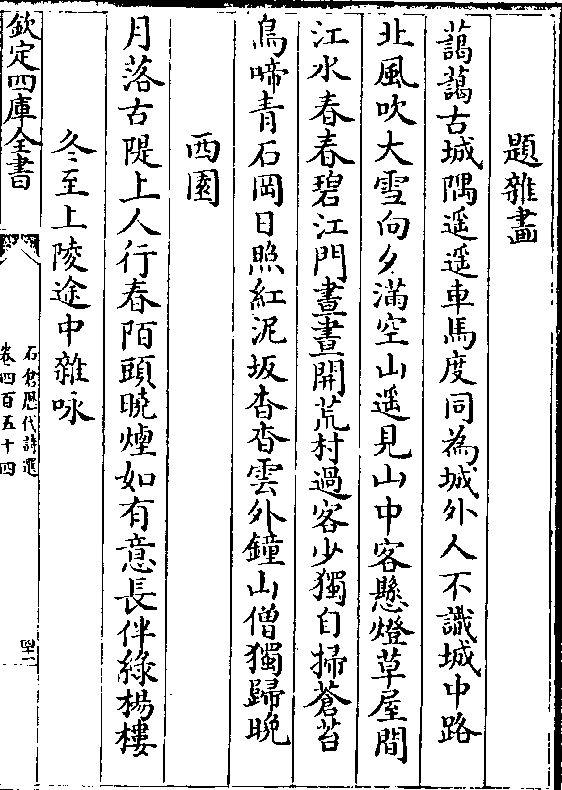 題雜畫
藹藹古城隅遥遥車馬度同為城外人不識城中路
北風吹大雪向夕滿空山遥見山中客懸燈草屋間
江水春春碧江門晝晝開荒村過客少獨自掃蒼苔
鳥啼青石岡日照紅泥坂杳杳雲外鐘山僧獨歸晚
西園
月落古隄上人行春陌頭曉煙如有意長伴綠楊樓
冬至上陵途中雜咏
欽定四庫全書
石倉歴代詩選
卷四百五十四